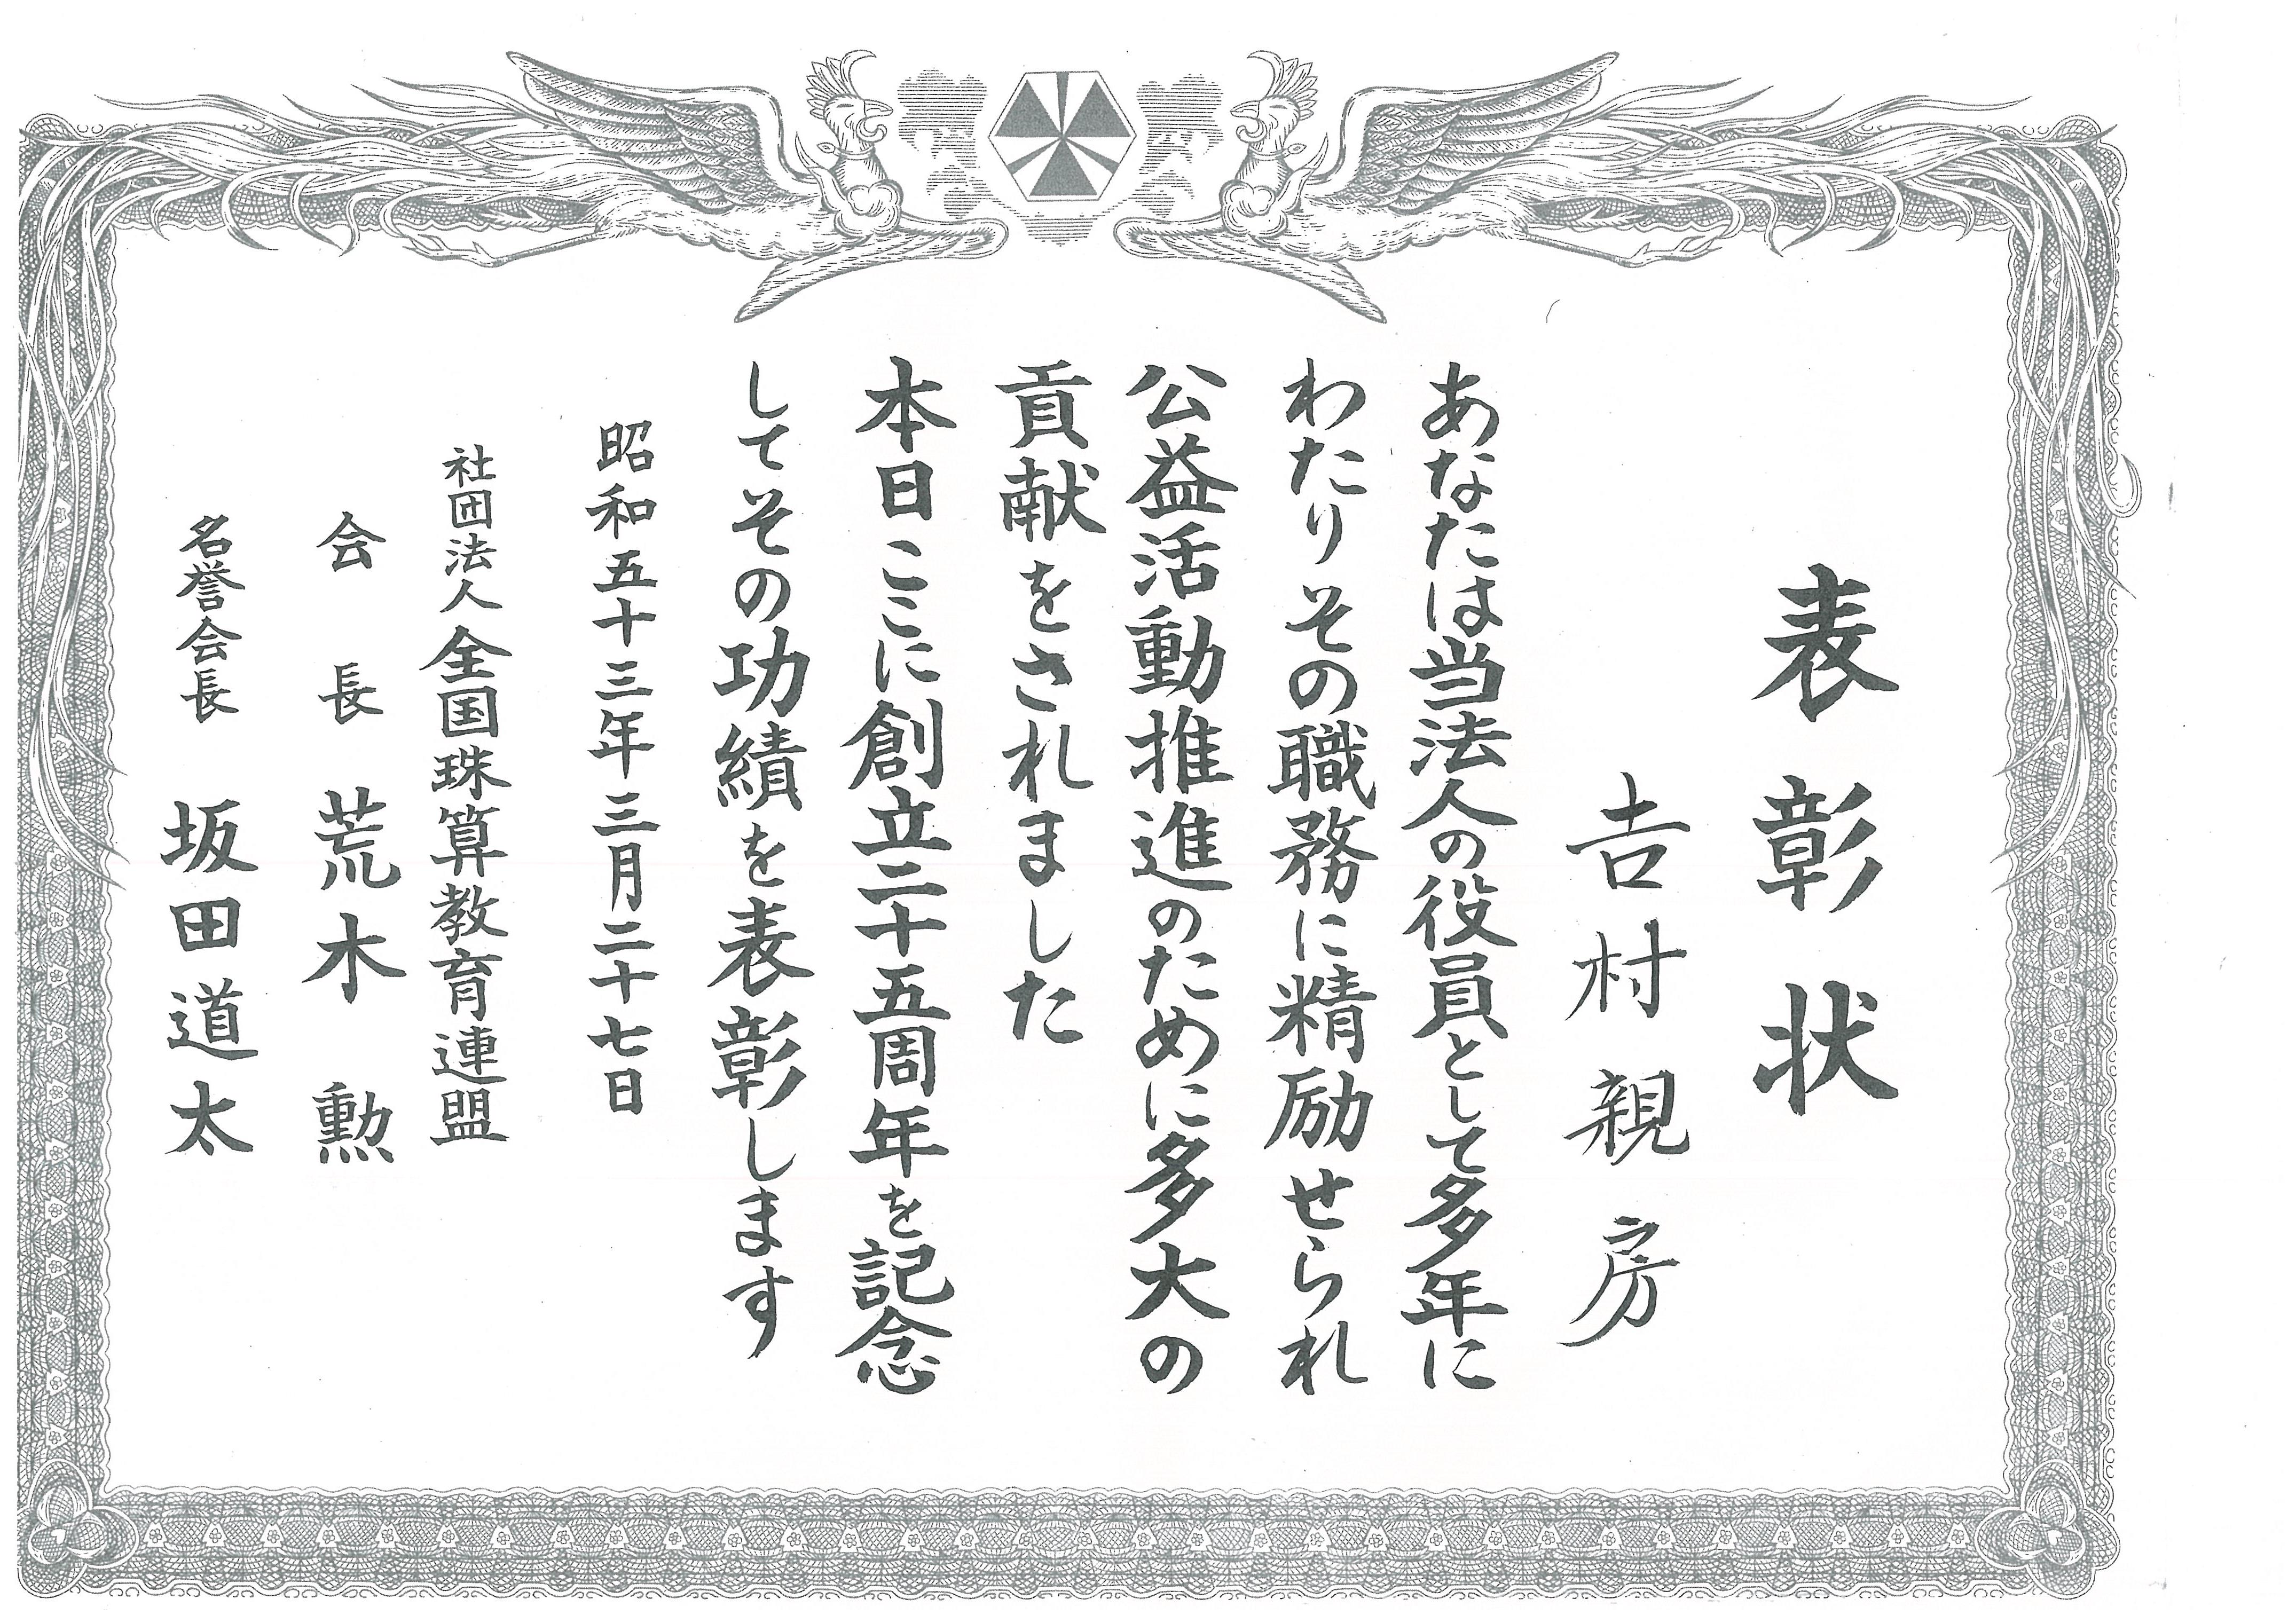 表彰状
吉村親房
あなたは当法人の役員として多年に
わたりその職務に精励せられ
公益活動推進のために多大の
貢献をされました
本日ここに創立二十五周年を記念
してその功績を表彰します
昭和五十三年三月二十七日
社団法人全国珠算教育連盟
会長 荒木 勲
名誉会長 坂田道太